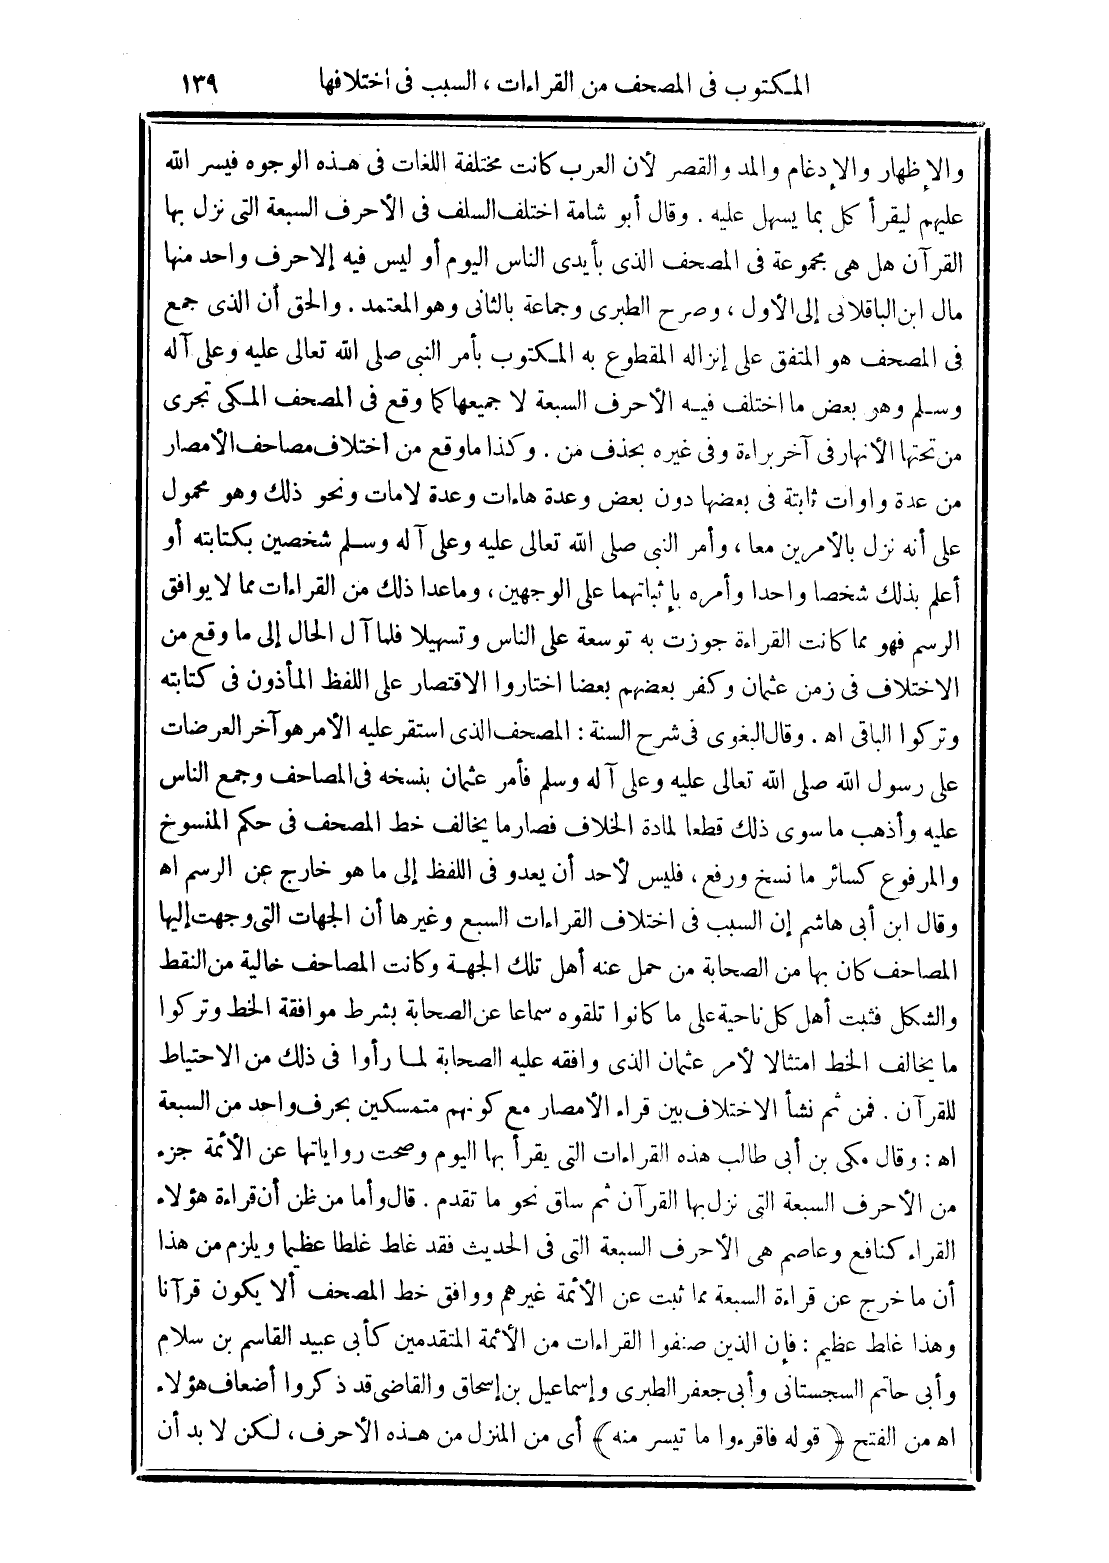 المكتوب فى المصحف من القراءات ، السبب فى اختلافها ١٣٩
والإظهار والإدغام والمد والقصر لأن العرب كانت مختلفة اللغات فى هذه الوجوه فيسر الله
عليهم ليقرأ كل بما يسهل عليه . وقال أبو شامة اختلف السلف فى الأحرف السبعة التى نزل بها
القرآن هل هى مجموعة فى المصحف الذى بأيدى الناس اليوم أو ليس فيه إلا حرف واحد منها
مال ابن الباقلانى إلى الأول ، وصرح الطبرى وجماعة بالثانى وهو المعتمد . والحق أن الذى جمع
فى المصحف هو المتفق على إنزاله المقطوع به المكتوب بأمر النبى صلى الله تعالى عليه وعلى آله
وسلم وهو بعض ما اختلف فيه الأحرف السبعة لا جميعها كما وقع فى المصحف المكى تجرى
من تحتها الأنهار فى آخر براءة وفى غيره بحذف من . وكذا ما وقع من اختلاف مصاحف الأمصار
من عدة واوات ثابتة فى بعضها دون بعض وعدة هاءات وعدة لامات ونحو ذلك وهو محمول
على أنه نزل بالأمرين معا ، وأمر النبى صلى الله تعالى عليه وعلى آله وسلم شخصين بكتابته أو
أعلم بذلك شخصا واحدا وأمره بإثباتهما على الوجهين ، وماعدا ذلك من القراءات مما لا يوافق
الرسم فهو مما كانت القراءة جوزت به توسعة على الناس وتسهيلا فلما آل الحال إلى ما وقع من
الاختلاف فى زمن عثمان وكفر بعضهم بعضا اختاروا الاقتصار على اللفظ المأذون فى كتابته
وتركوا الباقى اه . وقال البغوى فى شرح السنة : المصحف الذى استقر عليه الأمر هو آخر العرضات
على رسول الله صلى الله تعالى عليه وعلى آله وسلم فأمر عثمان بنسخه فى المصاحف وجمع الناس
عليه وأذهب ما سوى ذلك قطعا لمادة الخلاف فصار ما يخالف خط المصحف فى حكم المنسوخ
والمرفوع كسائر ما نسخ ورفع ، فليس لأحد أن يعدو فى اللفظ إلى ما هو خارج عن الرسم اه
وقال ابن أبى هاشم إن السبب فى اختلاف القراءات السبع وغيرها أن الجهات التى وجهت إليها
المصاحف كان بها من الصحابة من حمل عنه أهل تلك الجهة وكانت المصاحف خالية من النقط
والشكل فثبت أهل كل ناحية على ما كانوا تلقوه سماعا عن الصحابة بشرط موافقة الخط وتركوا
ما يخالف الخط امتثالا لأمر عثمان الذى وافقه عليه الصحابة لما رأوا فى ذلك من الاحتياط
للقرآن . فمن ثم نشأ الاختلاف بين قراء الأمصار مع كونهم متمسكين بحرف واحد من السبعة
اه : وقال مكى بن أبى طالب هذه القراءات التى يقرأ بها اليوم وصحت رواياتها عن الأئمة جزء
من الأحرف السبعة التى نزل بها القرآن ثم ساق نحو ما تقدم . قال وأما من ظن أن قراءة هؤلاء
القراء كنافع وعاصم هى الأحرف السبعة التى فى الحديث فقد غلط غلطا عظيما ويلزم من هذا
أن ما خرج عن قراءة السبعة مما ثبت عن الأئمة غيرهم ووافق خط المصحف ألا يكون قرآنا
وهذا غلط عظيم : فإن الذين صنفوا القراءات من الأئمة المتقدمين كأبى عبيد القاسم بن سلام
وأبى حاتم السجستانى وأبى جعفر الطبرى وإسماعيل بن إسحاق والقاضى قد ذكروا أضعاف هؤلاء
اه من الفتح ﴿ قوله فاقرءوا ما تيسر منه ﴾ أى من المنزل من هذه الأحرف ، لكن لا بد أن